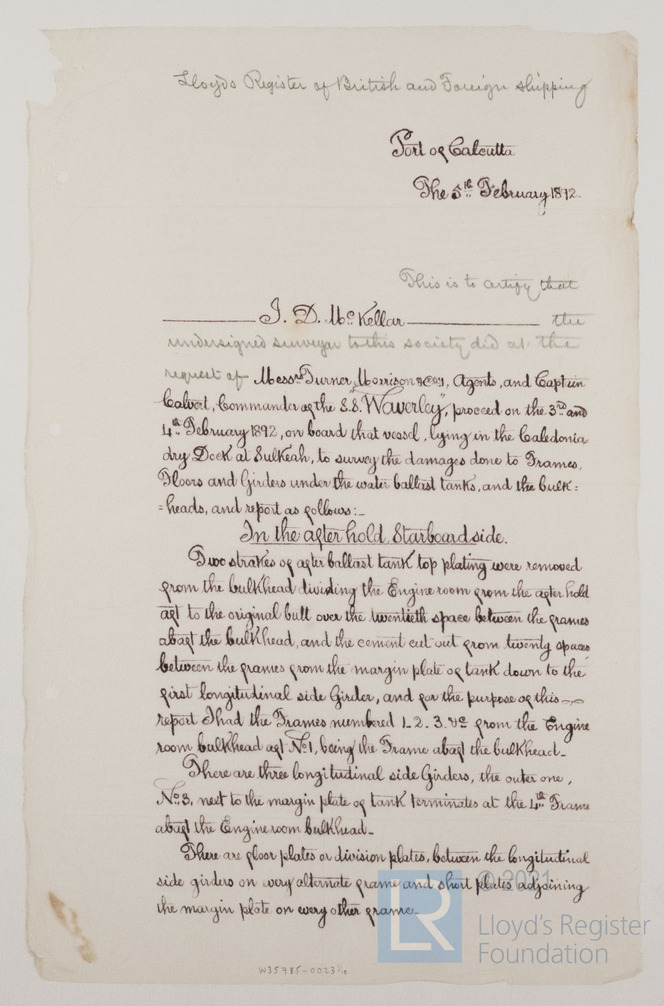 Lloyds Register of British and Foreign shipping
Port of Calcutta
The 5th February 1892.
This is to certify that
J. D. Mc Kellar the
undersigned surveyor to this society did at the
request of Messrs Turner, Morrison & Coy, Agents, and Captain
Calvert, Commander of the S.S. "Waverley", proceed on the 3rd and
4th February 1892, on board that vessel, lying in the Caledonia
dry Dock at Sulkeah, to survey the damages done to Frames,
Floors and Girders under the water ballast tanks, and the bulk=
=heads, and report as follows:-
In the after hold, Starboard side.
Two strakes of after ballast tank top plating were removed
from the bulkhead dividing the Engine room from the after hold
aft to the original butt over the twentieth space between the frames
abaft the bulkhead, and the cement cut out from twenty spaces
between the frames from the margin plate of tank down to the
first longitudinal side Girder, and for the purpose of this
report I had the Frames numbered 1. 2. 3. &c from the Engine
room bulkhead aft No 1, being the Frame abaft the bulkhead-
There are three longitudinal side Girders, the outer one,
No 3, next to the margin plate of tank terminates at the 4th Frame
abaft the Engine room bulkhead-
There are floor plates or division plates, between the longitudinal
side girders on every alternate frame and short plates adjoining
the margin plate on every other frame-
© 2021
LR
Lloyd's Register
Foundation